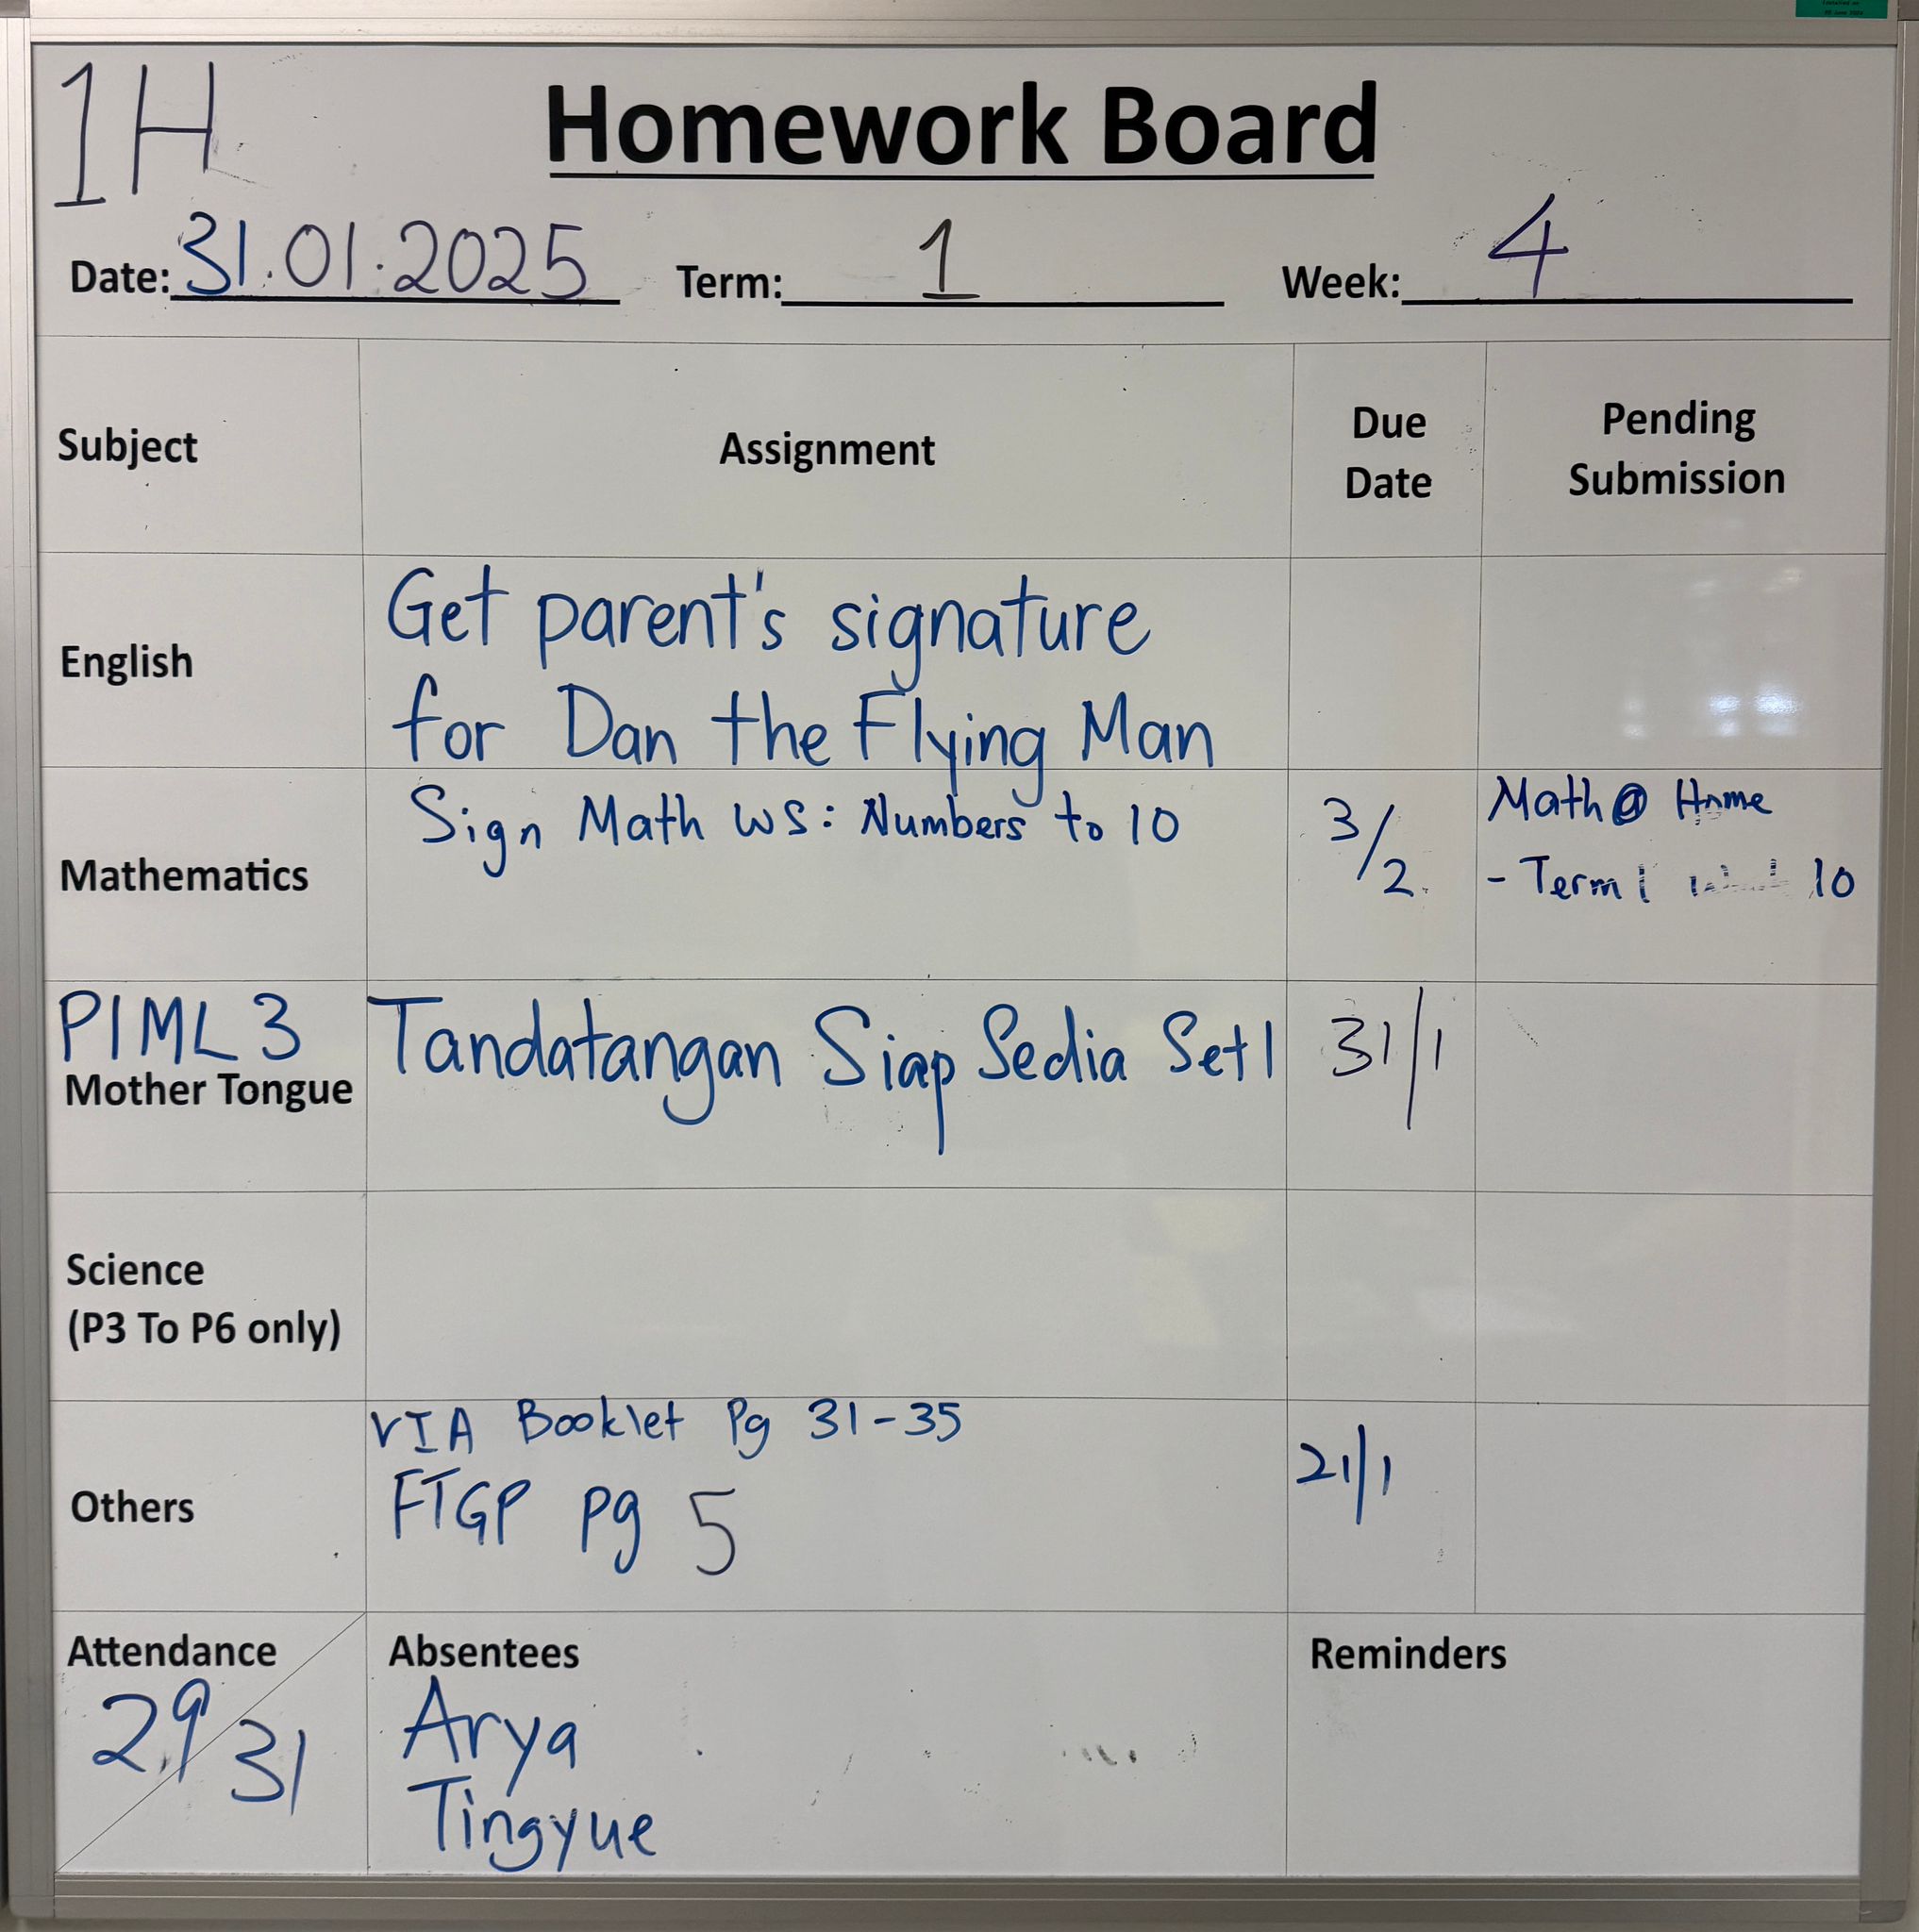 1H
Homework Board
Date: 31.01.2025 Term: 1 Week: 4
Subject Assignment Due Date Pending Submission
English
Get parent's signature
for Dan the Flying Man
Mathematics
Sign Math WS: Numbers to 10
3/2
Math@ Home
- Term 1 10
PIML 3
Mother Tongue
Tandatangan Siap Sedia Set1
31/1
Science
(P3 To P6 only)
Others
VIA Booklet Pg 31-35
FTGP pg 5
21/1
Attendance
29/31
Absentees
Arya
Tingyue
Reminders